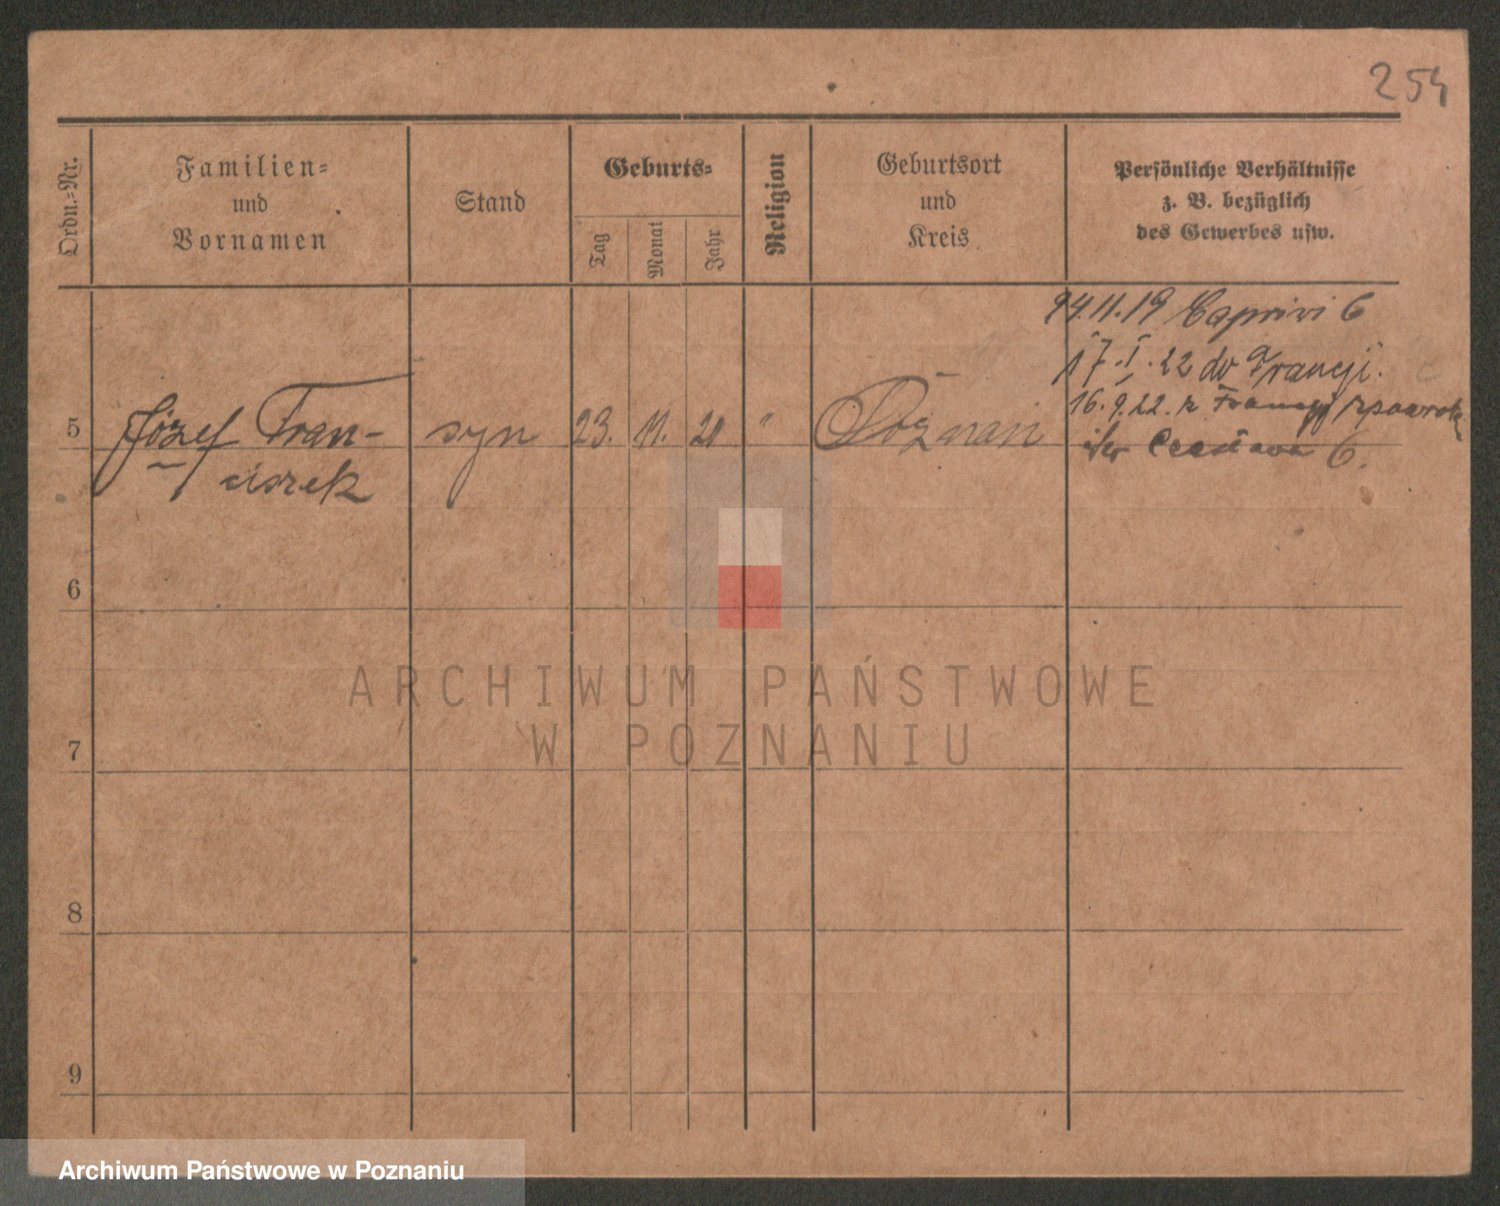 254
Ordn.-Nr.
Familien-
und
Vornamen
Stand
Geburts-
Tag
Monat
Jahr
Religion
Geburtsort
und
Kreis
Persönliche Verhältnisse
z. B. bezüglich
des Gewerbes usw.
11.19 Caprivi 6
17.I.22 do Francji.
16.9.22. z Francji zpowrotem
6.
5 Józef Fran- syn 23. 11. 20 " Poznań
ciszek
6
7
8
9
ARCHIWUM PAŃSTWOWE
W POZNANIU
Archiwum Państwowe w Poznaniu